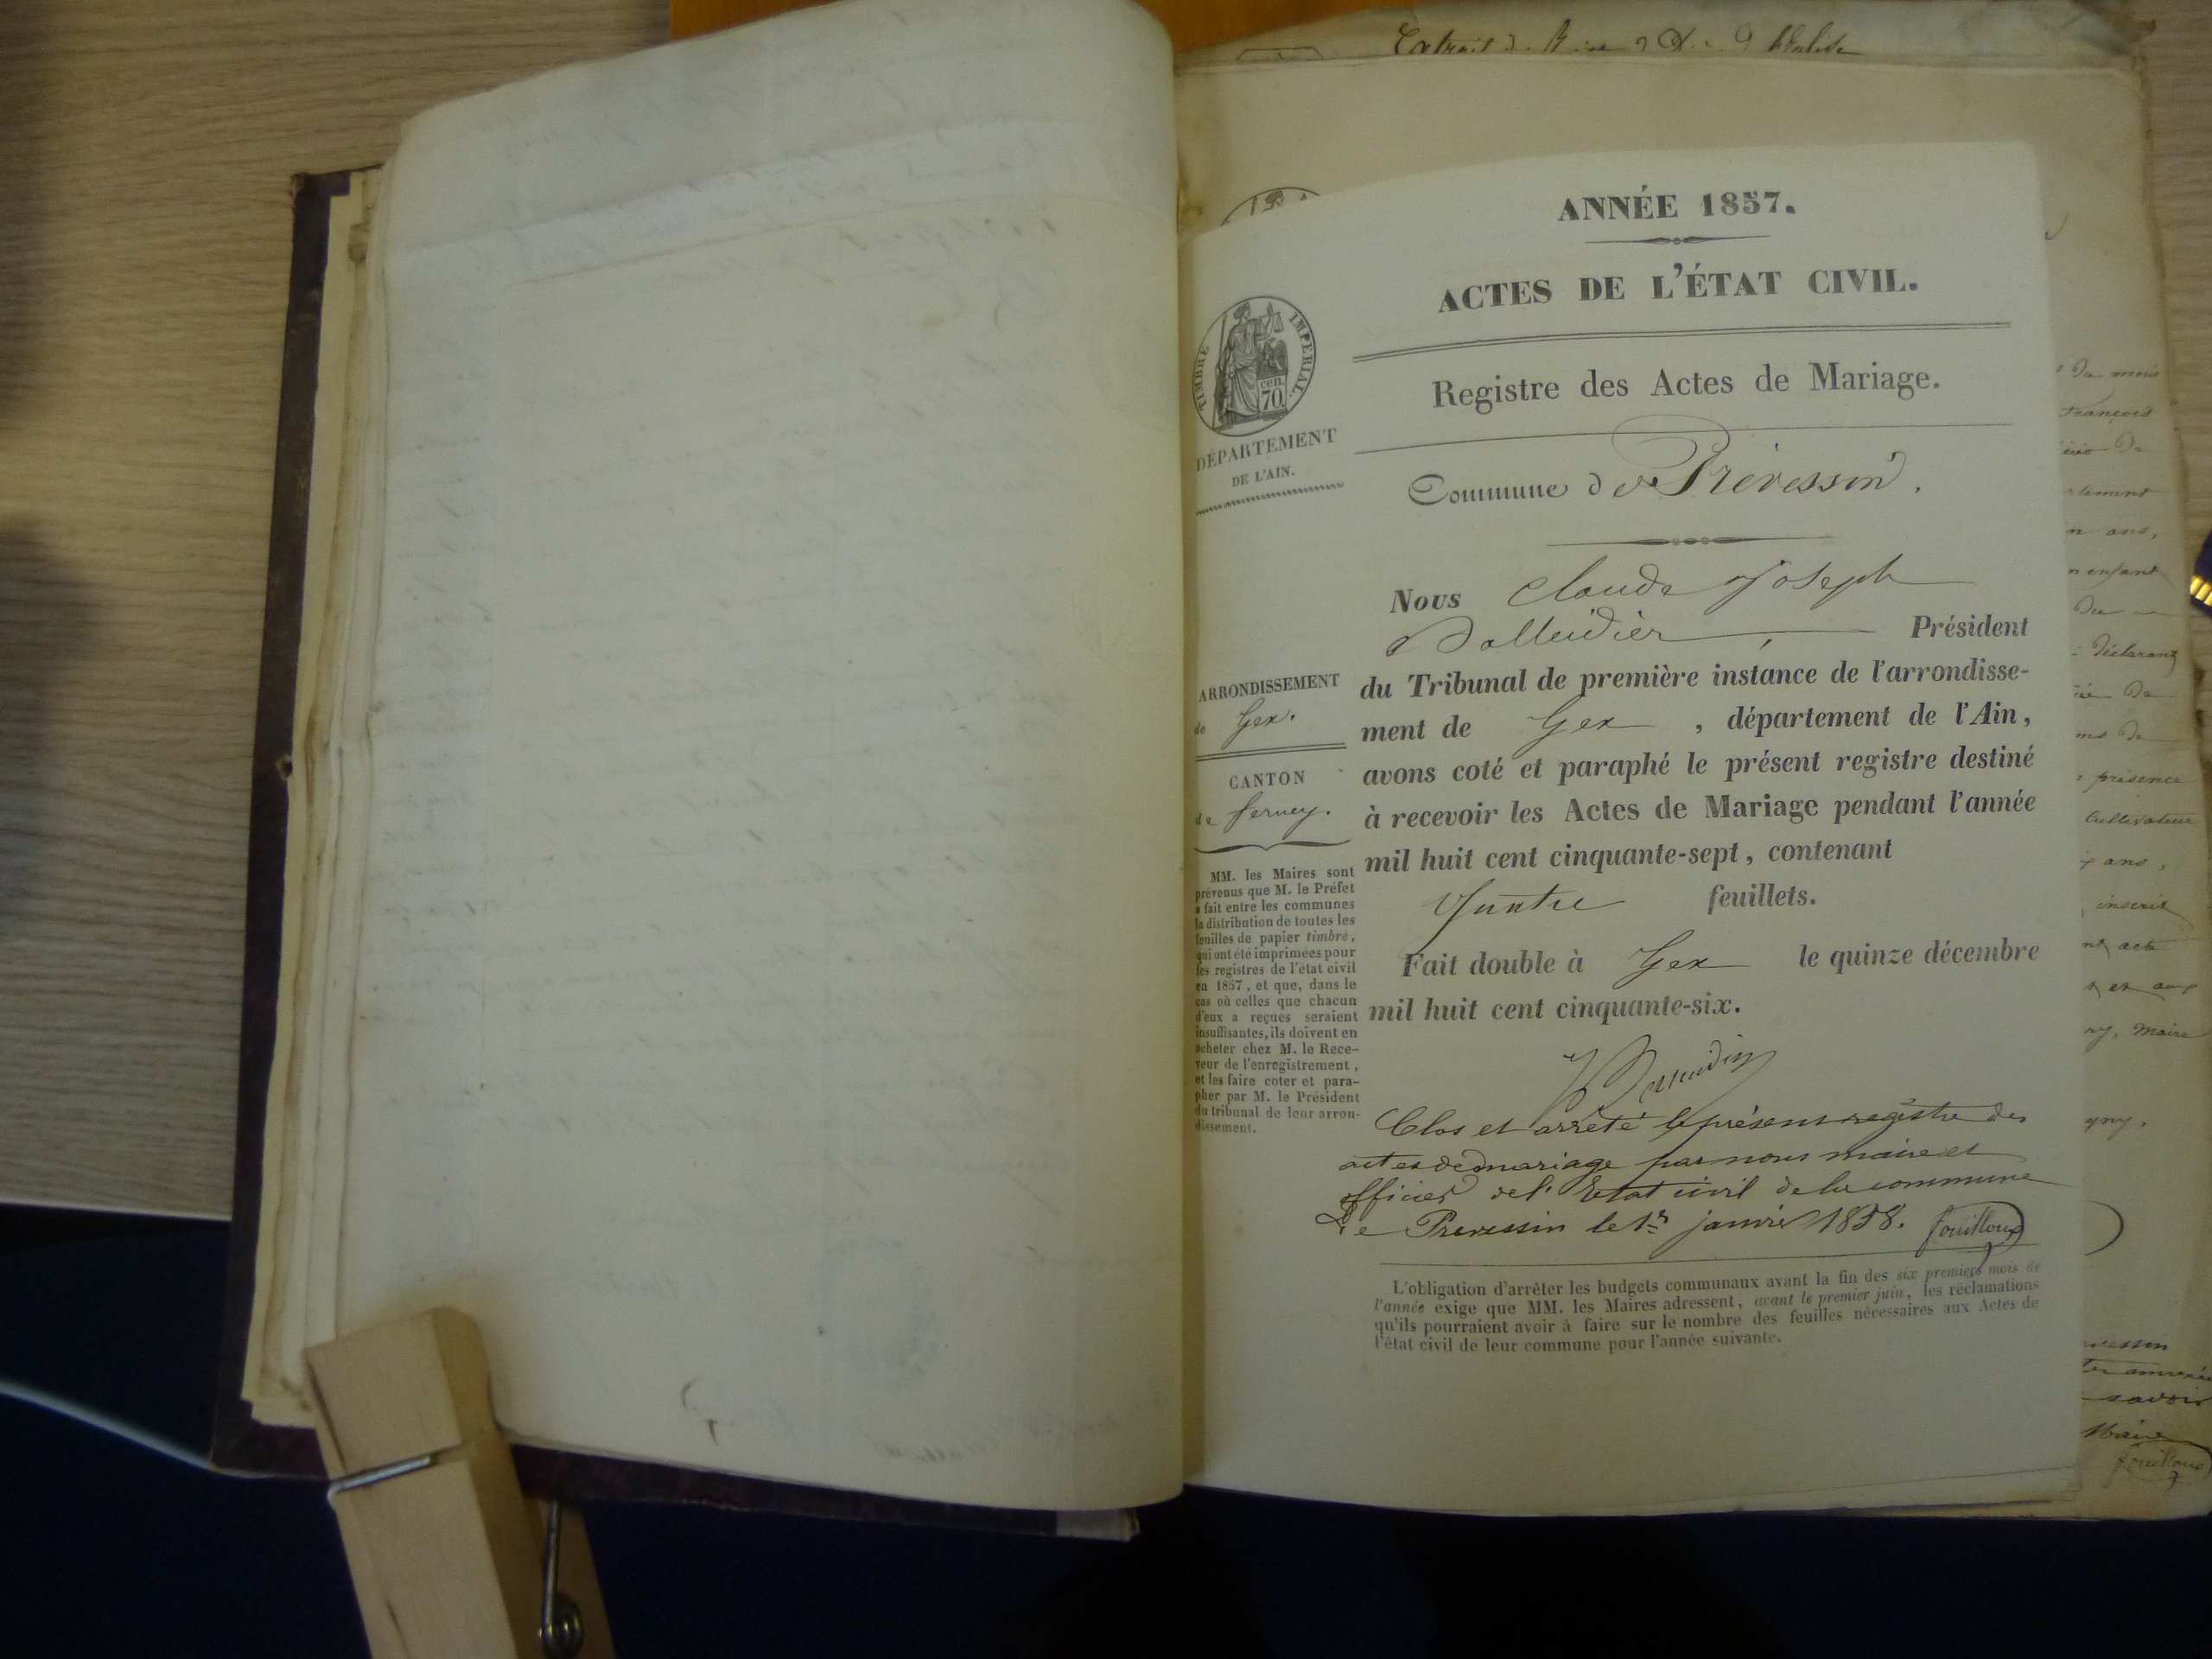 Extrait
ANNÉE 1857.
ACTES DE L'ÉTAT CIVIL.
TIMBRE IMPERIAL.
cen.
70.
Registre des Actes de Mariage.
DÉPARTEMENT
DE L'AIN.
Commune de Prévessin.
Nous Claude Joseph
Président
du Tribunal de première instance de l'arrondisse-
ment de Gex, département de l'Ain,
avons coté et paraphé le présent registre destiné
à recevoir les Actes de Mariage pendant l'année
mil huit cent cinquante-sept, contenant
Quatre feuillets.
Fait double à Gex le quinze décembre
mil huit cent cinquante-six.
Clos et arrêté le présent registre des
actes de mariage par nous maire et
officier de l'Etat civil de la commune
De Prevessin le 1er janvier 1858. fouilloux
L'obligation d'arrêter les budgets communaux avant la fin des six premiers mois de
l'année exige que MM. les Maires adressent, avant le premier juin, les réclamations
qu'ils pourraient avoir à faire sur le nombre des feuilles nécessaires aux Actes de
l'état civil de leur commune pour l'année suivante.
ARRONDISSEMENT
de Gex.
CANTON
de ferney.
MM. les Maires sont
prévenus que M. le Préfet
a fait entre les communes
la distribution de toutes les
feuilles de papier timbré,
qui ont été imprimées pour
les registres de l'état civil
en 1857, et que, dans le
cas où celles que chacun
d'eux a reçues seraient
insuffisantes, ils doivent en
acheter chez M. le Rece-
veur de l'enregistrement,
et les faire coter et para-
pher par M. le Président
du tribunal de leur arron-
dissement.
du mois
françois
de
n ans,
enfant
du
déclarant
de
de
présence
Cultivateur
ans,
inscrit
acte
et
maire
savoir
Maire
fouilloux